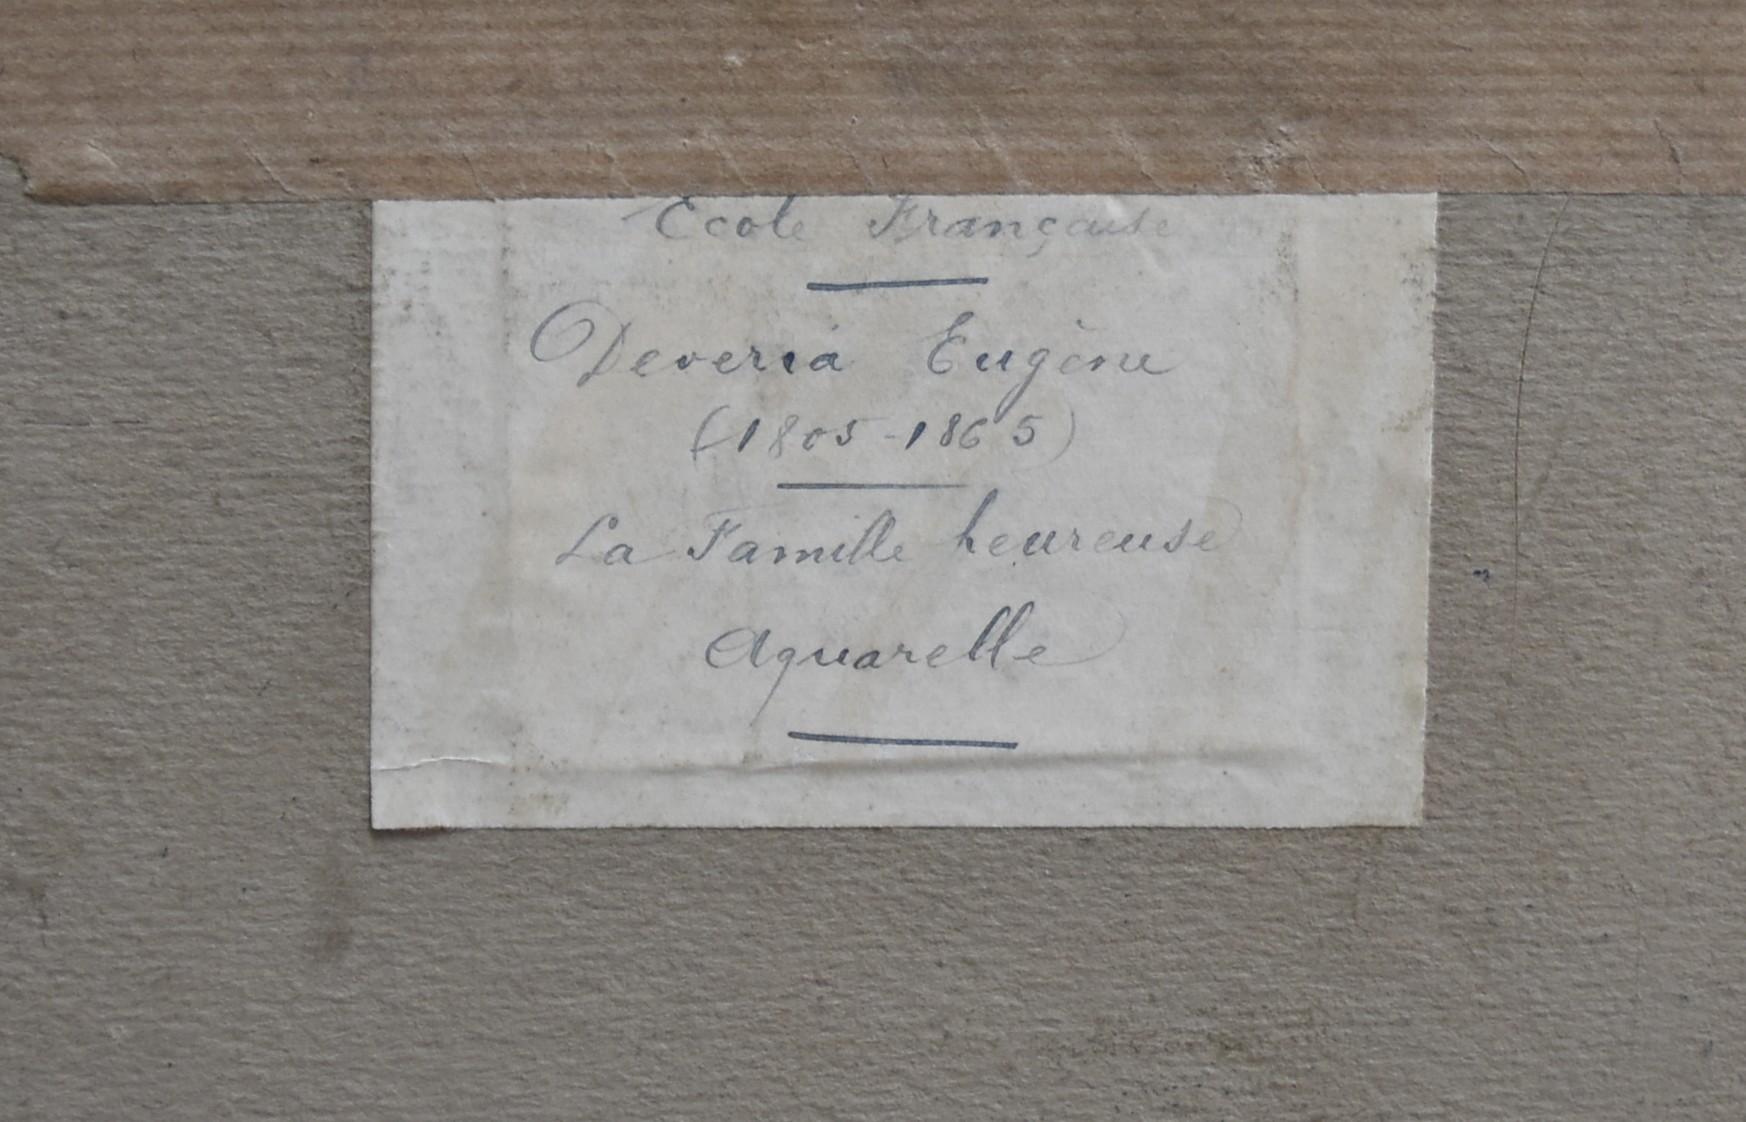 Ecole Française
Deveria Eugène
(1805-1865)
La Famille heureuse
Aquarelle